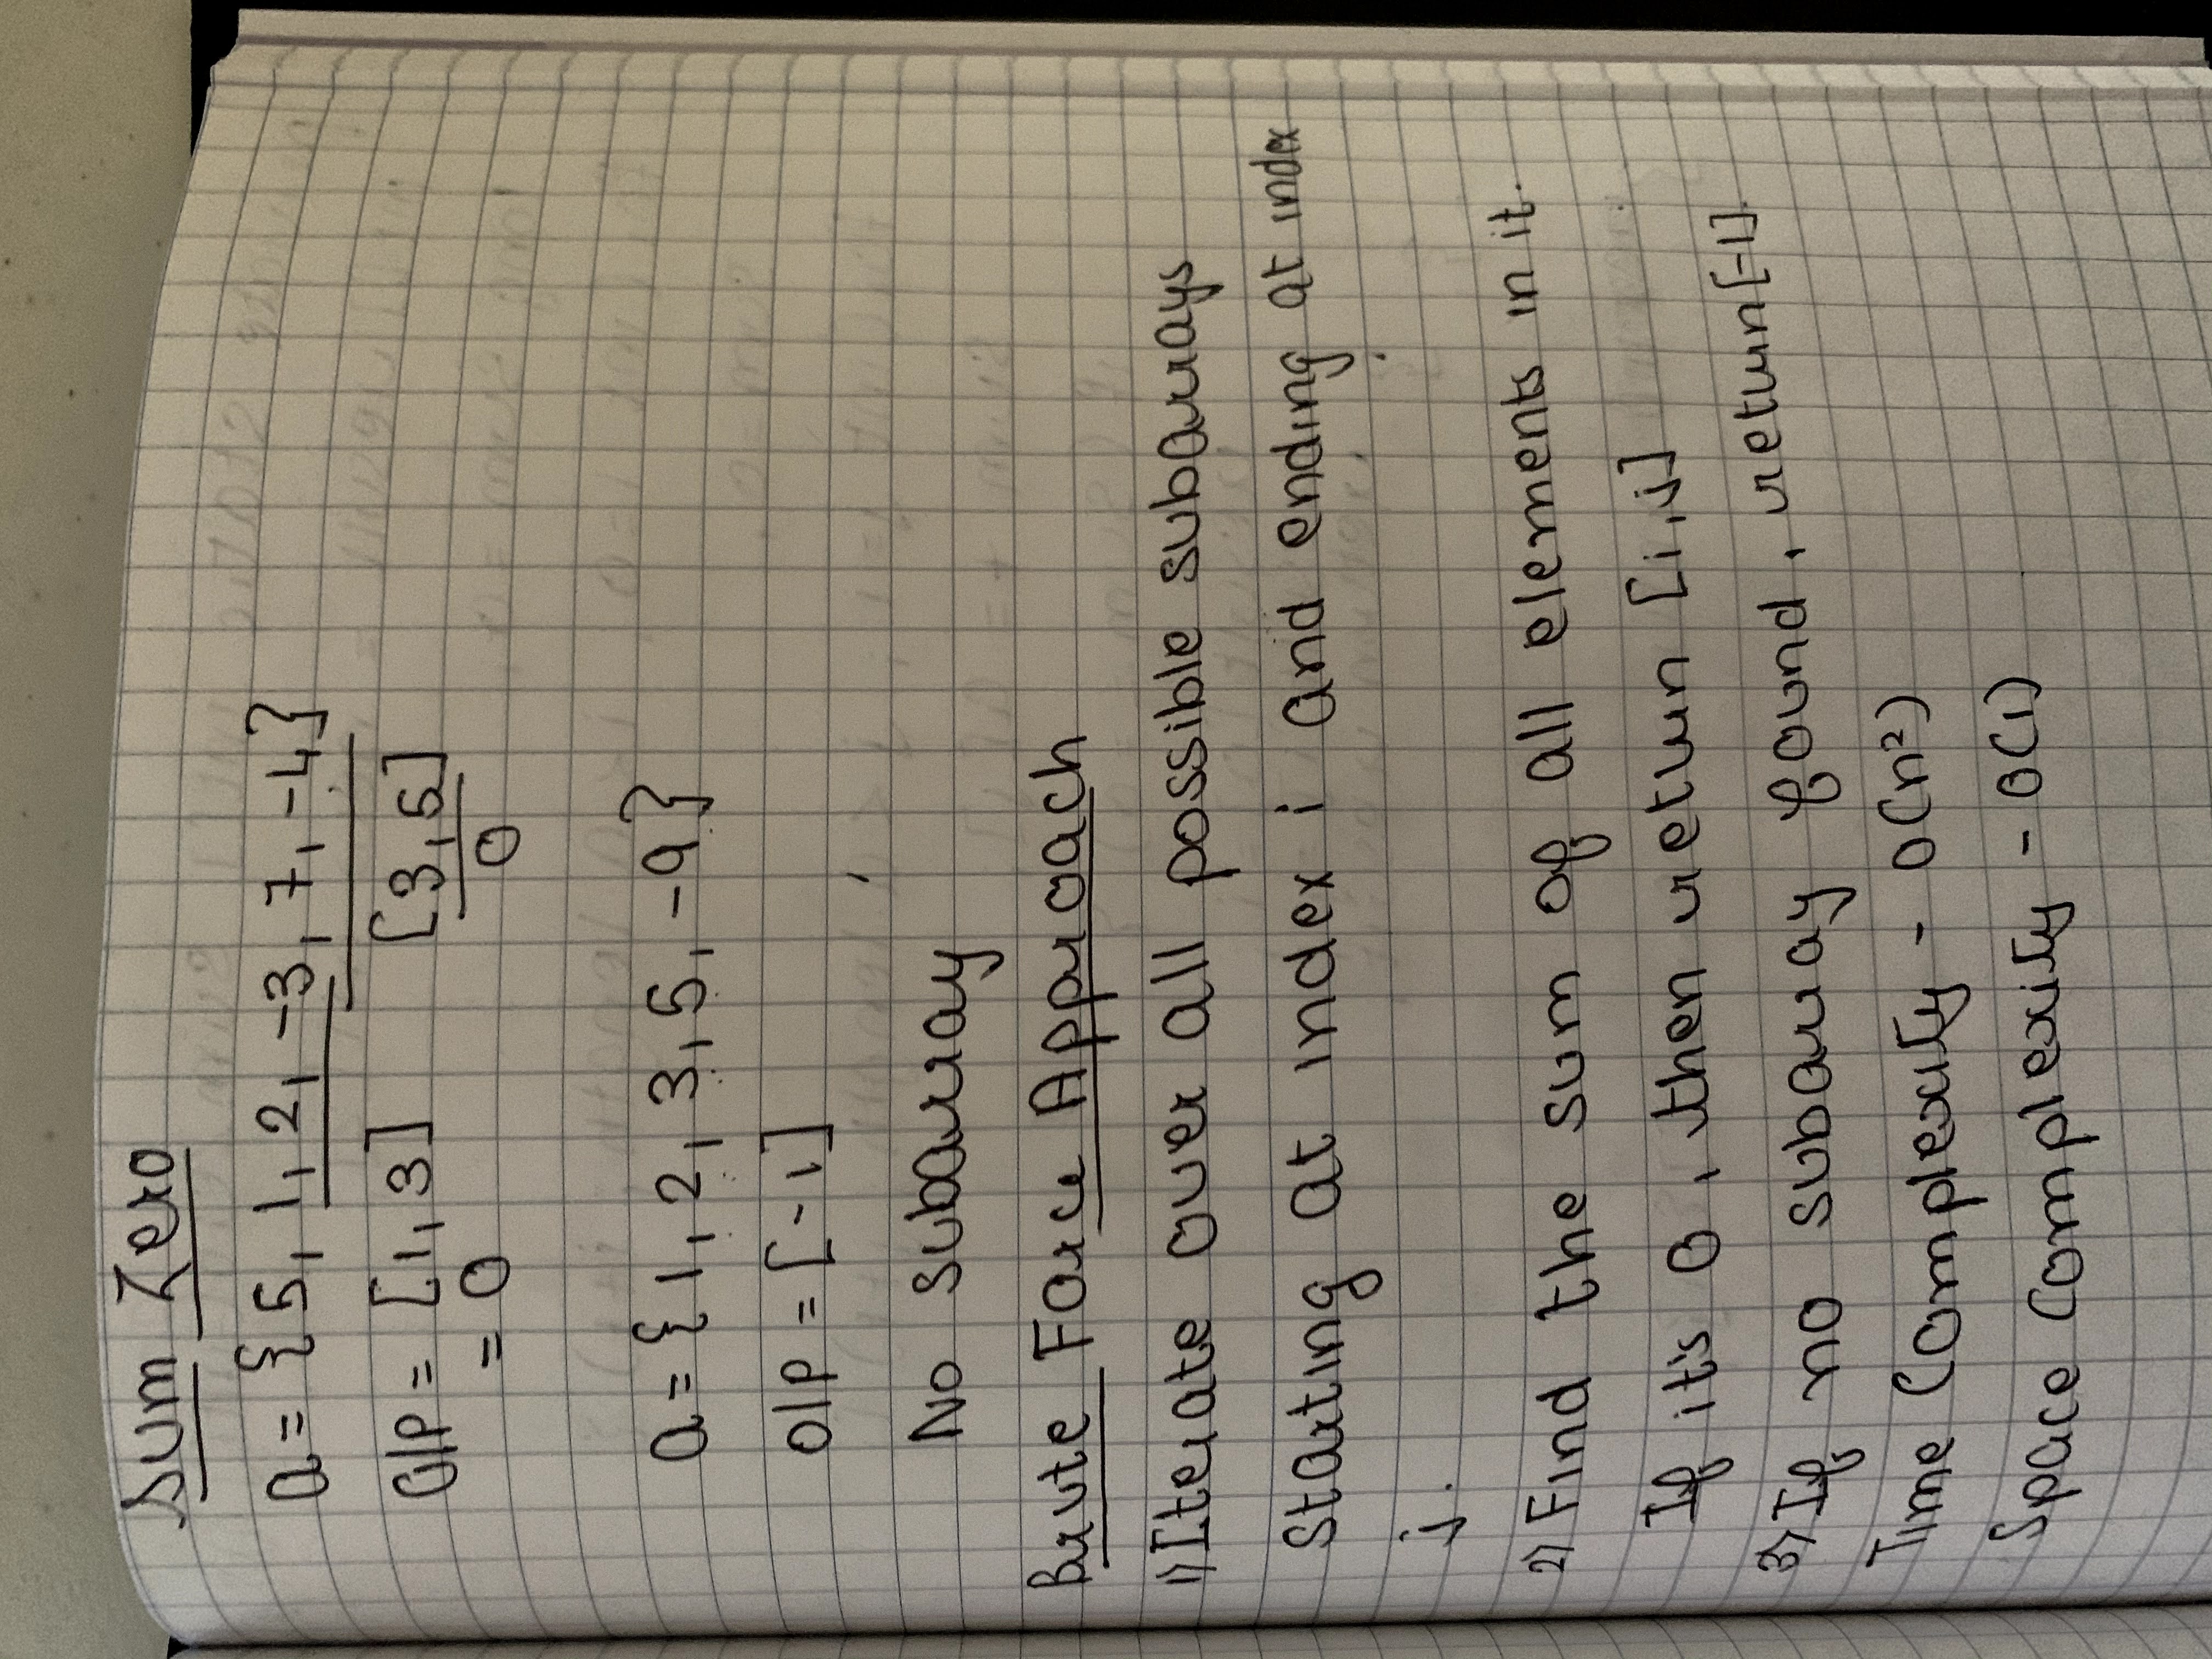 Sum Zero
a = {5, 1, 2, -3, 7, -4}
O/P = [1, 3] [3, 5]
= 0 0
a = {1, 2, 3, 5, -9}
O/P = [-1]
No subarray
Brute Force Approach
1) Iterate over all possible subarrays
starting at index i and ending at index
j.
2) Find the sum of all elements in it.
If it's 0, then return [i, j]
3) If no subarray found, return [-1].
Time Complexity - O(n²)
Space Complexity - O(1)